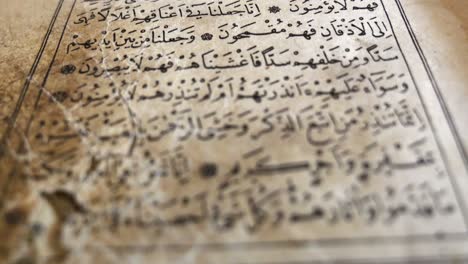 فَهُمْ لَا يُؤْمِنُونَ ۞ إِنَّا جَعَلْنَا فِي أَعْنَاقِهِمْ أَغْلَالًا فَهِيَ
إِلَى الْأَذْقَانِ فَهُمْ مُقْمَحُونَ ۞ وَجَعَلْنَا مِنْ بَيْنِ أَيْدِيهِمْ
سَدًّا وَمِنْ خَلْفِهِمْ سَدًّا فَأَغْشَيْنَاهُمْ فَهُمْ لَا يُبْصِرُونَ ۞
وَسَوَاءٌ عَلَيْهِمْ ءَأَنْذَرْتَهُمْ أَمْ لَمْ تُنْذِرْهُمْ لَا يُؤْمِنُونَ ۞
إِنَّمَا تُنْذِرُ مَنِ اتَّبَعَ الذِّكْرَ وَخَشِيَ الرَّحْمٰنَ
بِمَغْفِرَةٍ وَأَجْرٍ كَرِيمٍ ۞ إِنَّا
مَا قَدَّمُوا وَآثَارَهُمْ وَكُلَّ شَيْءٍ أَحْصَيْنَاهُ